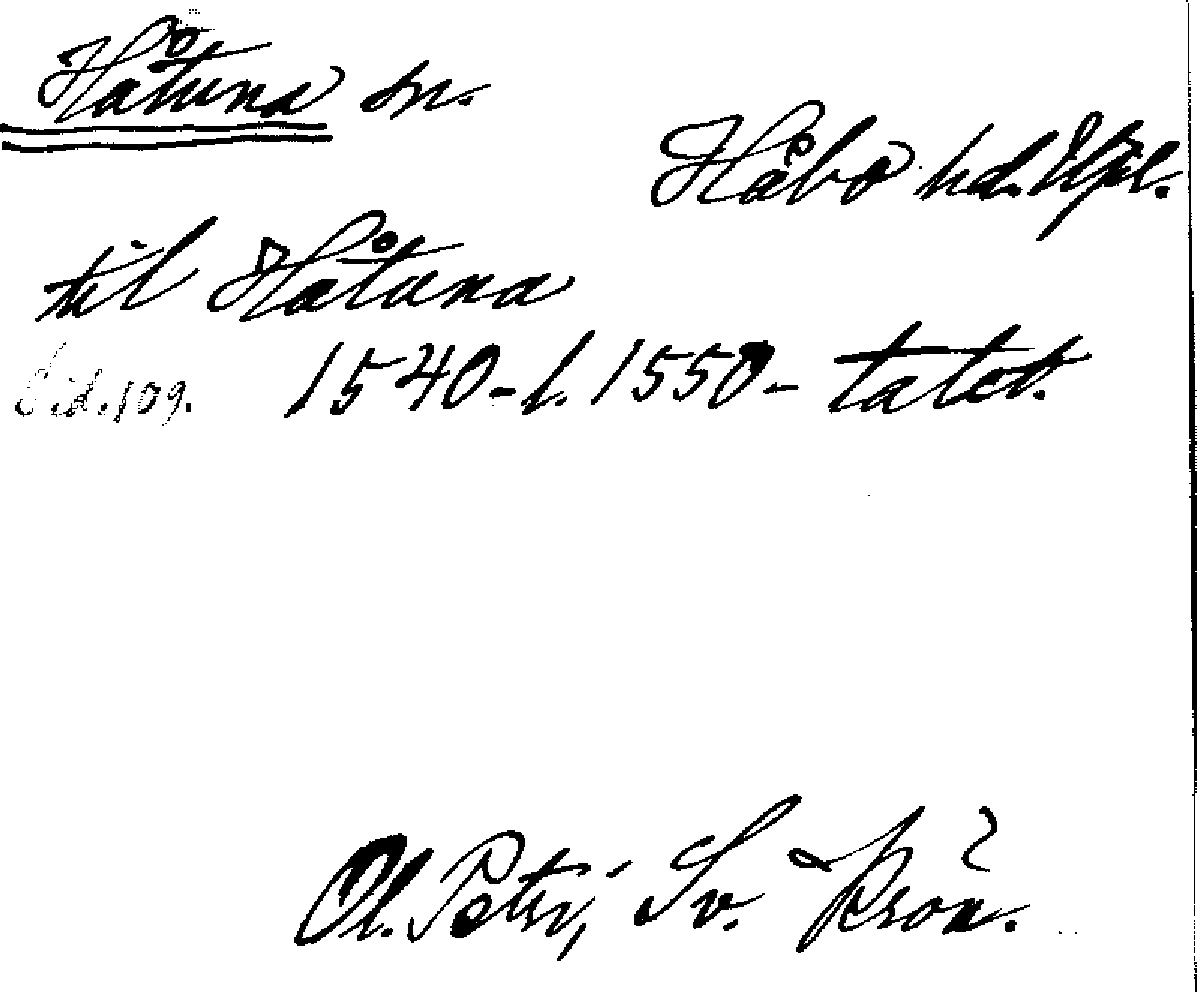 Håtuna sn.
Håbo hd. Uppl.
til Håtuna
Sid. 109. 1540-l. 1550-talet.
Ol. Petri, Sv. Krön.